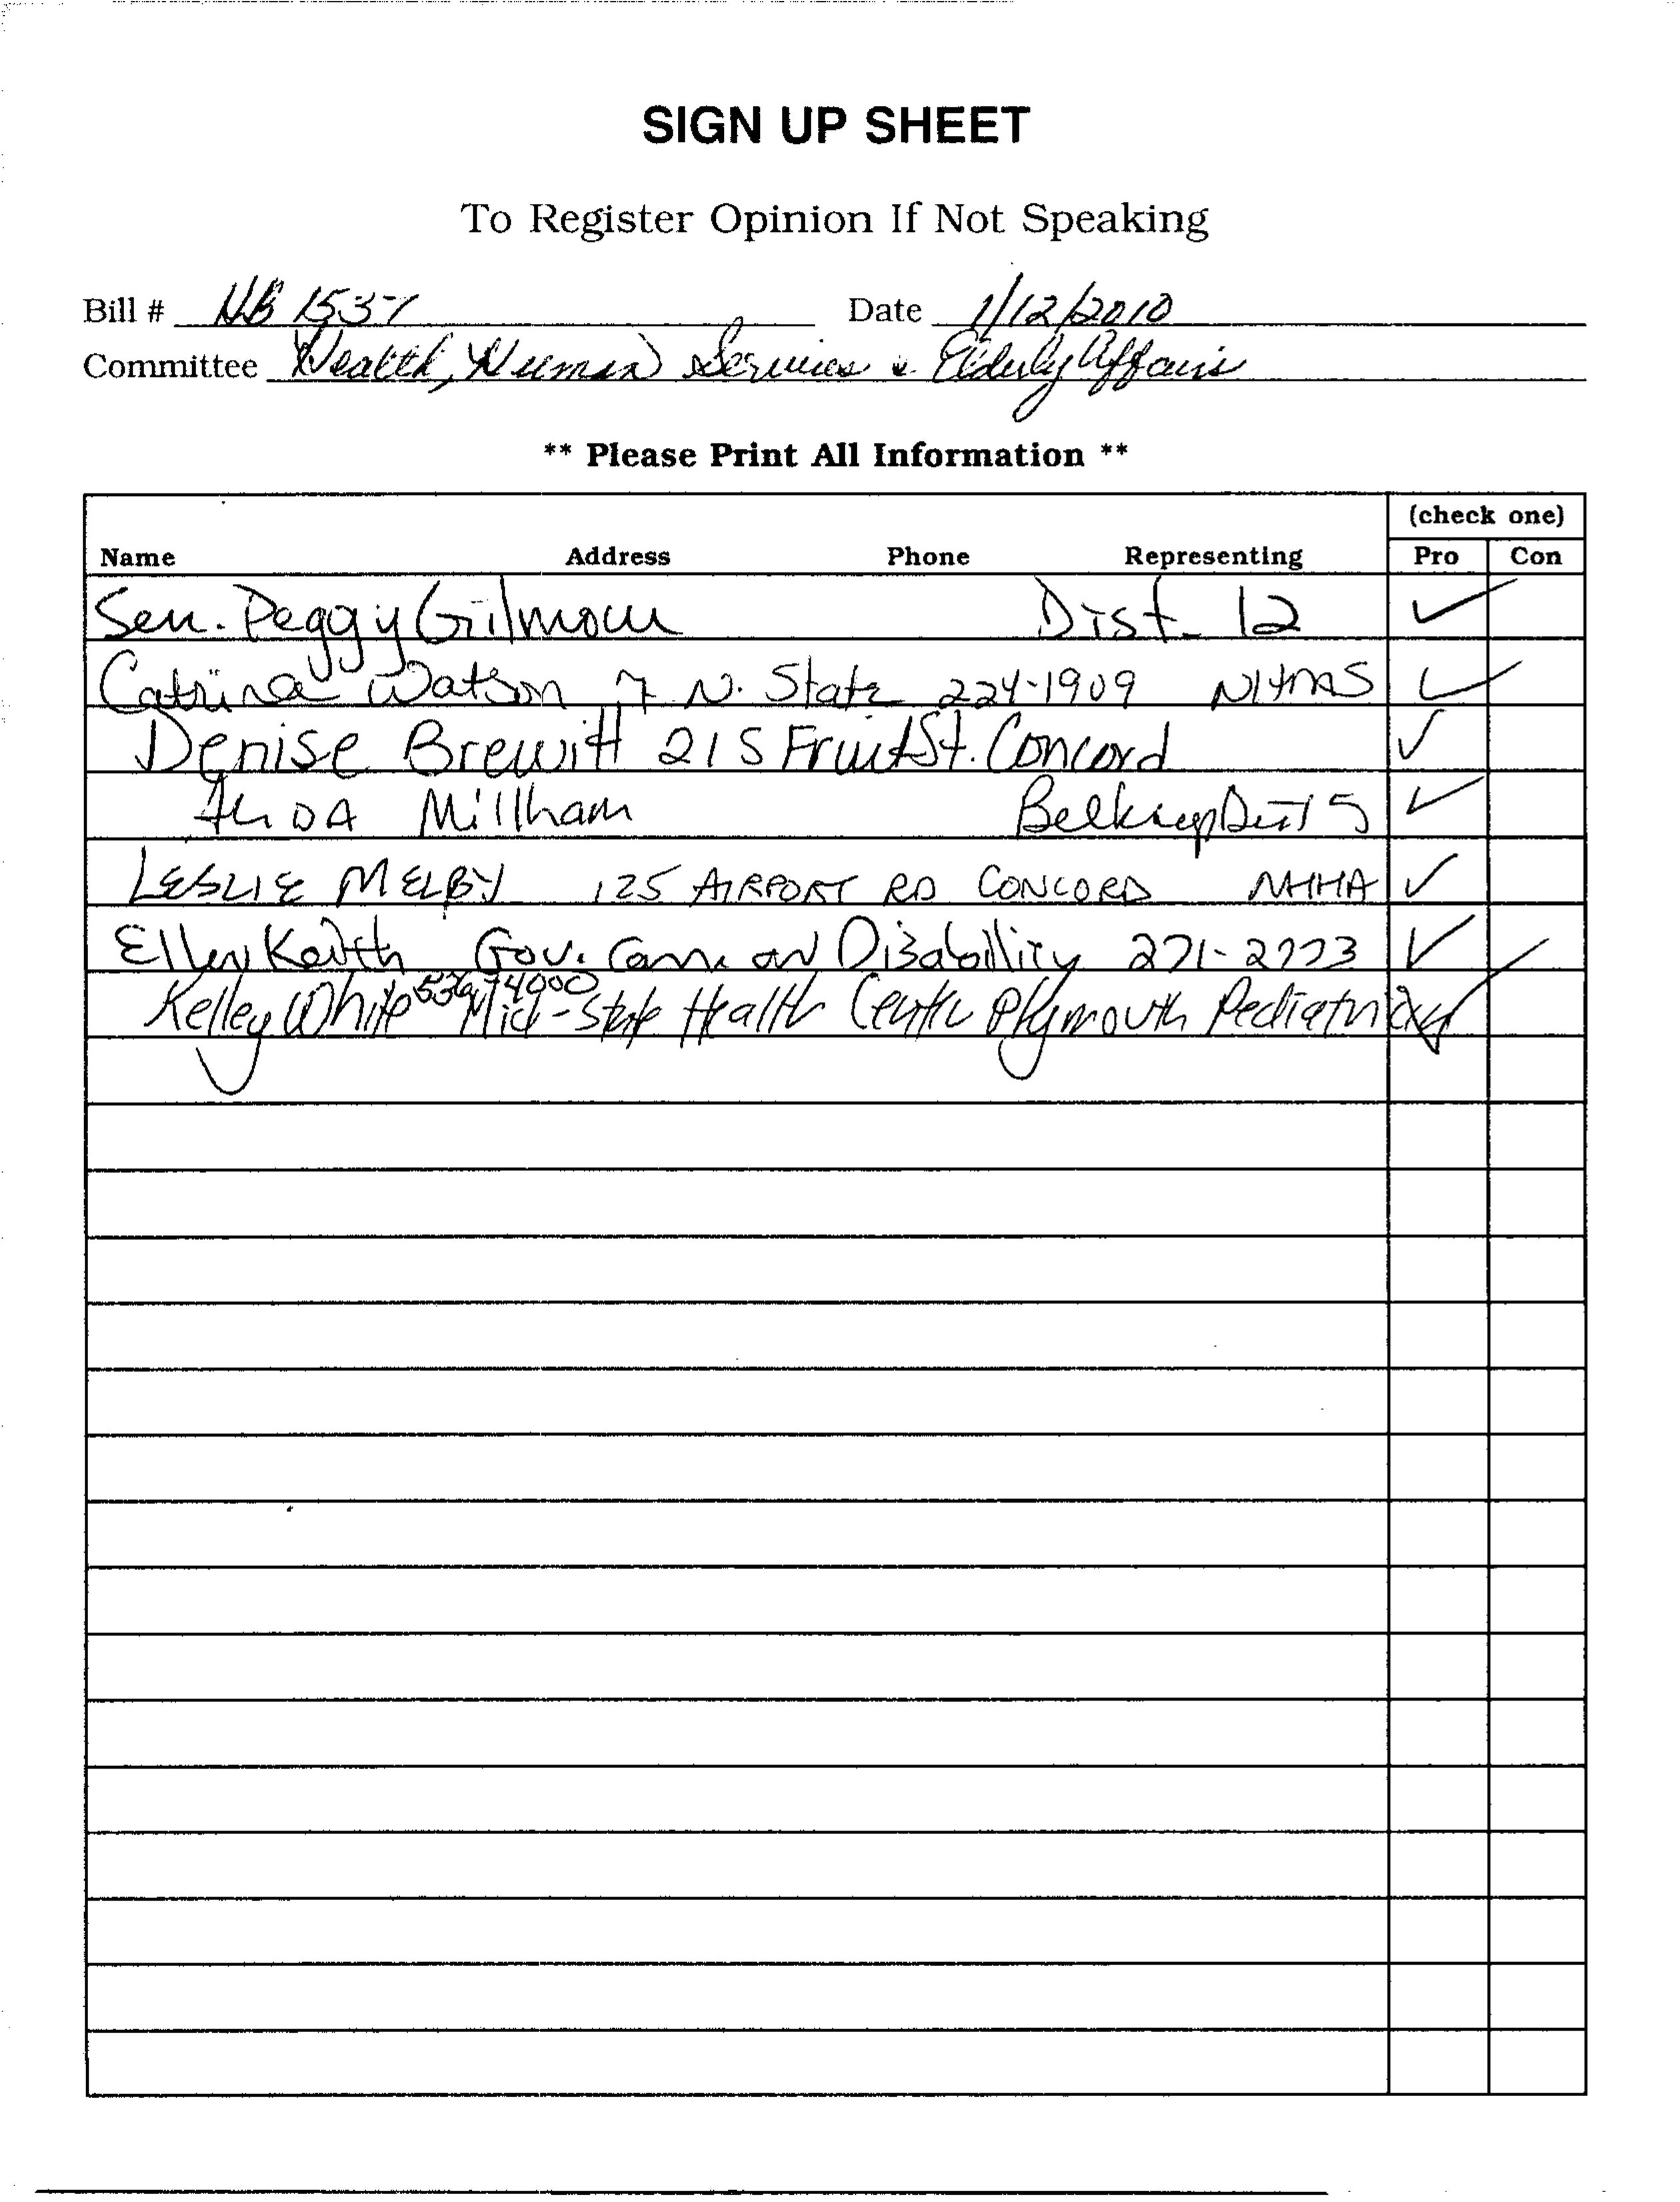 SIGN UP SHEET
To Register Opinion If Not Speaking
Bill # HB 1537 Date 1/12/2010
Committee Health, Human Services & Elderly Affairs
** Please Print All Information **
(check one)
Name Address Phone Representing Pro Con
Sen. Peggy Gilmour Dist. 12 ✓
Catrina Watson 7 N. State 224-1909 NHMS ✓
Denise Brewitt 21 S Fruit St. Concord ✓
Alida Millham Belknap Dist 5 ✓
LESLIE MELBY 125 AIRPORT RD CONCORD NHHA ✓
Ellen Keith Gov. Comm on Disability 271-2773 ✓
Kelley White 536-4000 Mid-State Health Center Plymouth Pediatrician ✓